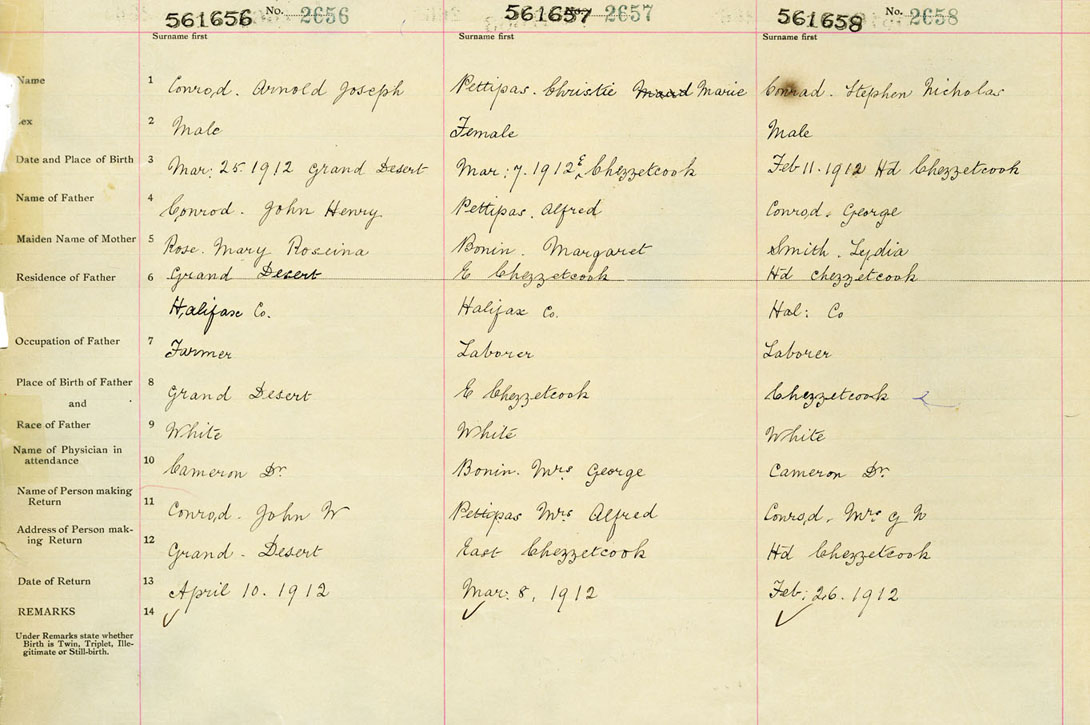 561656 No. 2656 561657 2657 561658 No. 2658
Surname first Surname first Surname first
Name 1 Conrod. Arnold Joseph Pettipas. Christie Maud Marie Conrad. Stephen Nicholas
Sex 2 Male Female Male
Date and Place of Birth 3 Mar: 25. 1912 Grand Desert Mar: 7. 1912 E Chezzetcook Feb 11. 1912 Hd Chezzetcook
Name of Father 4 Conrod. John Henry Pettipas. Alfred Conrod. George
Maiden Name of Mother 5 Rose. Mary Roseina Bonin. Margaret Smith. Lydia
Residence of Father 6 Grand Desert E Chezzetcook Hd Chezzetcook
Halifax Co. Halifax Co. Hal: Co
Occupation of Father 7 Farmer Laborer Laborer
Place of Birth of Father 8 Grand Desert E Chezzetcook Chezzetcook
and
Race of Father 9 White White White
Name of Physician in
attendance 10 Cameron Dr. Bonin. Mrs George Cameron Dr.
Name of Person making
Return 11 Conrod. John W Pettipas Mrs Alfred Conrod. Mrs G W
Address of Person mak-
ing Return 12 Grand - Desert East Chezzetcook Hd Chezzetcook
Date of Return 13 April 10. 1912 Mar. 8, 1912 Feb: 26. 1912
REMARKS 14
Under Remarks state whether
Birth is Twin, Triplet, Ille-
gitimate or Still-birth.